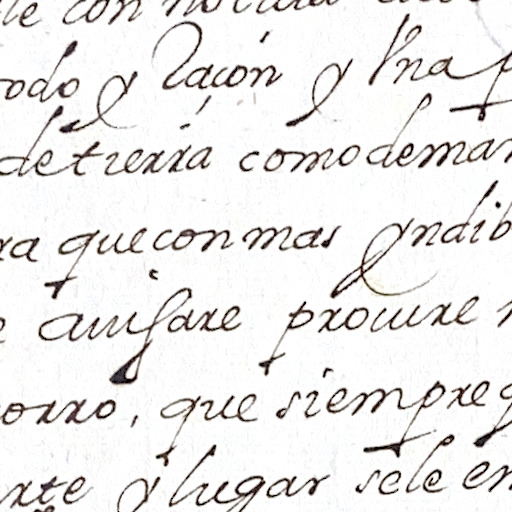 le con
todo y Racon y Una p
de tierra como demar
ra que con mas yndib
e auisare procure n
corro, que siempre q
arte y lugar se le en